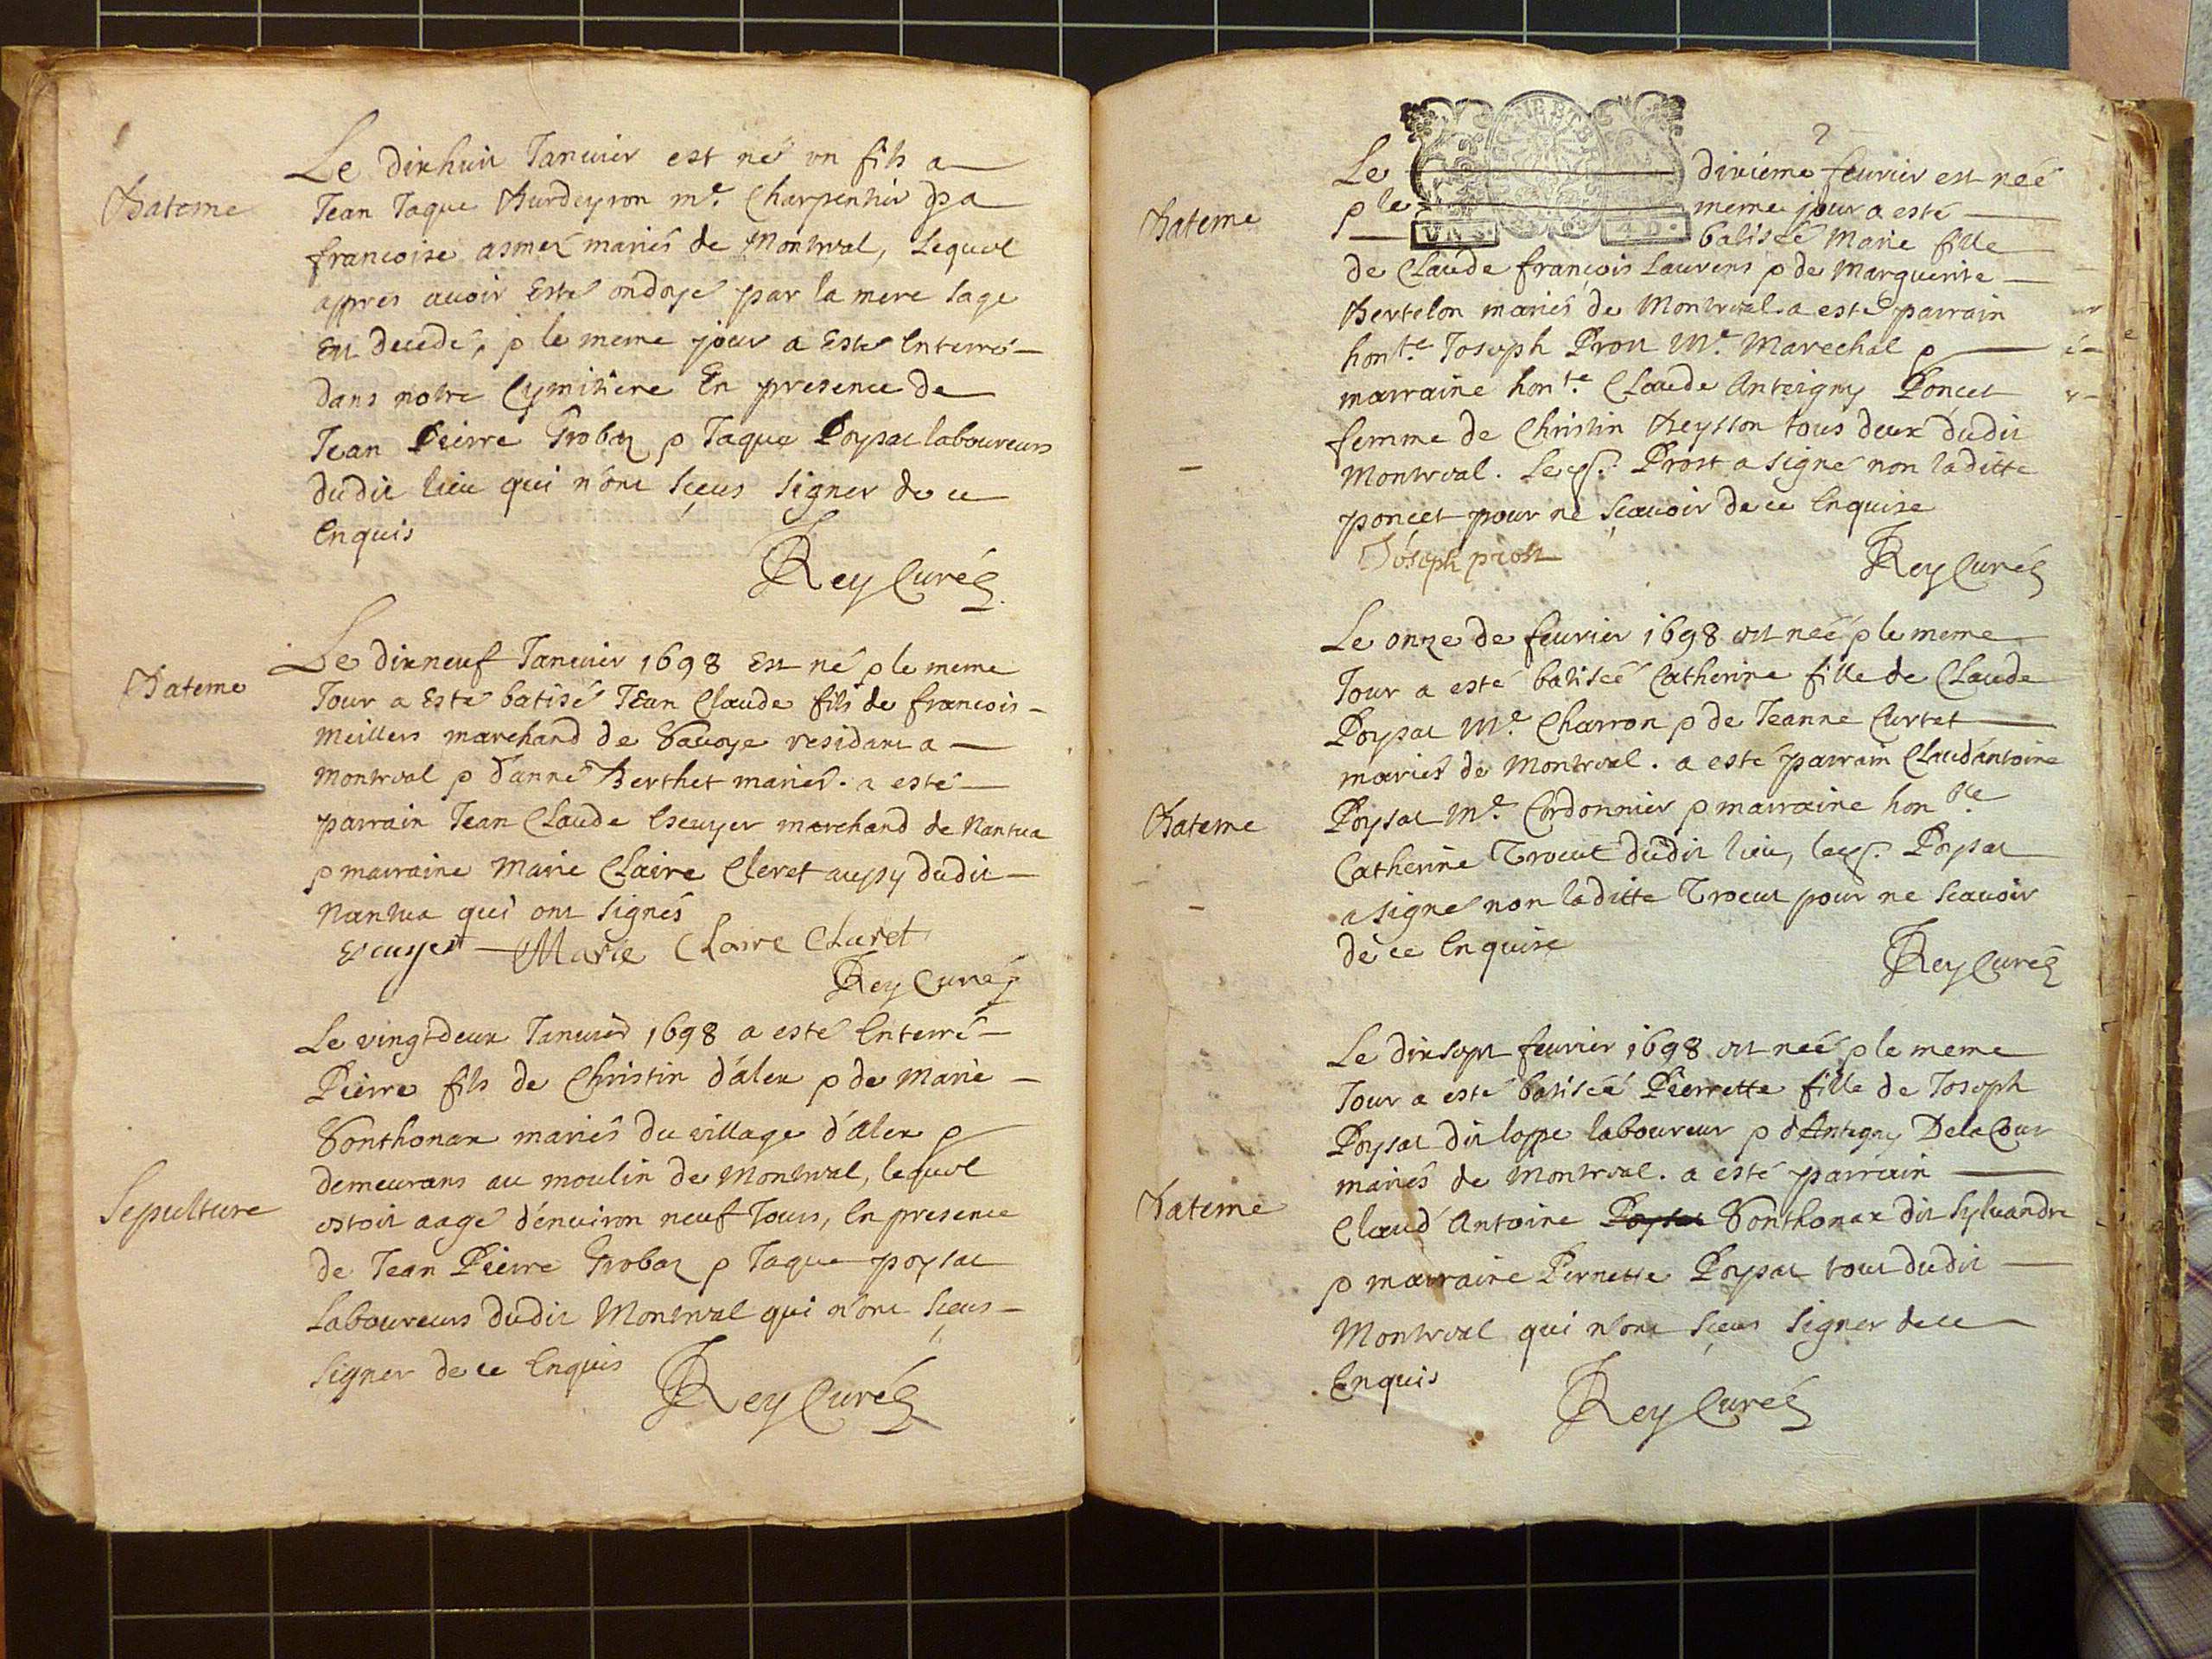 Bateme
Le dixhuit Januier est né vn fils a
Jean Jaque Burdeyron m.e Charpentier & a
francoise asmez mariés de Montreal, Lequel
apprés auoir Esté ondoyé par la mere sage
Est decedé, & le meme jour a Esté Enterré
dans notre Cymitiere En presence de
Jean Pierre Grobaz & Jaque Poysat laboureurs
dudit lieu qui n'ont sçeus signer de ce
Enquis
Rey Curé
Bateme
Le dixneuf Januier 1698 Est né & le meme
Jour a Esté batisé JEan Claude fils de francois
Meillers marchand de Sauoye residant a
Montreal & d'anne Berthet mariés. a esté
parrain Jean Claude Escuyer marchand de Nantua
& marraine Marie Claire Cleret aussy dudit
Nantua qui ont signés
Escuyer Marie Claire Cluret
Rey Curé
Sepulture
Le vingtdeux Januier 1698 a esté Enterré
Pierre fils de Christin d'alex & de Marie
Sonthonax mariés du village d'Alex &
demeurans au moulin de Montreal, lequel
estoit aagé d'enuiron neuf Jours, En presence
de Jean Pierre Grobaz & Jaque poysat
Laboureurs dudit Montreal qui n'ont sçeus
signer de ce Enquis
Rey Curé
Bateme
Le dixiéme feurier est neé
& le meme jour a esté
VN S. 4 D.
batiseé Marie fille
de Claude françois Laurens & de Marguerite
Bertelon mariés de Montreal a esté parrain
hon.te Joseph Prost M.e Marechal &
marraine hon.te Claude Anteigny Poncet
femme de Christin Reysson tous deux dudit
Montreal. Led. Prost a signé non laditte
poncet pour ne sçauoir de ce Enquise
Joseph prost
Rey Curé
Bateme
Le onze de feurier 1698 est neé & le meme
Jour a esté batiseé Catherine fille de Claude
Poysat M.e Charron & de Jeanne Curtet
mariés de Montreal. a esté parrain Claud'antoine
Poysat M.e Cordonnier & marraine hon.ble
Catherine Trocut dudit lieu, led. Poysat
a signé non laditte Trocut pour ne scauoir
de ce Enquise
Rey Curé
Bateme
Le dixsept feurier 1698 est neé & le meme
Jour a esté batiseé Pierrette fille de Joseph
Poysat dit loppe laboureur & d'Antegny DelaCour
mariés de Montreal. a esté parrain
Claud' Antoine Poysat Sonthonax dit Syluandre
& marraine Pernette Poysat tous dudit
Montreal qui n'ont sçeus signer de ce
Enquis
Rey Curé